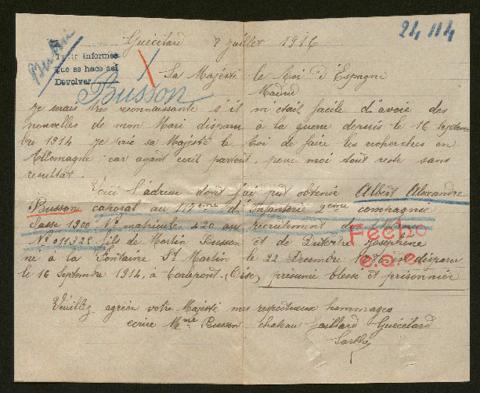 Guécélard 8 juillet 1916
24,114
Busson
Pedir informes
que se hace así
Devolver
Sa Majesté le Roi d'Espagne
Madrid
Busson
Je serais très reconnaissante s'il m'était facile d'avoir des
nouvelles de mon Mari disparu à la guerre depuis le 16 Septembre
1914 Je prie sa Majesté le Roi de faire les recherches en
Allemagne car ayant écrit partout, pour moi tout reste sans
resultat
Voici l'adresse dont j'ai pût obtenir Albert Alexandre
Busson caporal au 117ème d'Infanterie 2ème compagnie
Classe 1900 Nº matricule 420 au recrutement
Nº 011322 fils de Martin Busson et de Joséphine
Fecho
e.o.e.
né à la Fontaine St Martin le 22 Decembre disparu
le 16 Septembre 1914, à Carlepont (Oise) présumé blessé et prisonnier
Veuillez agréer votre Majesté mes respectueux hommages
écrire Mme Busson chateau Gaillard Guécélard
Sarthe